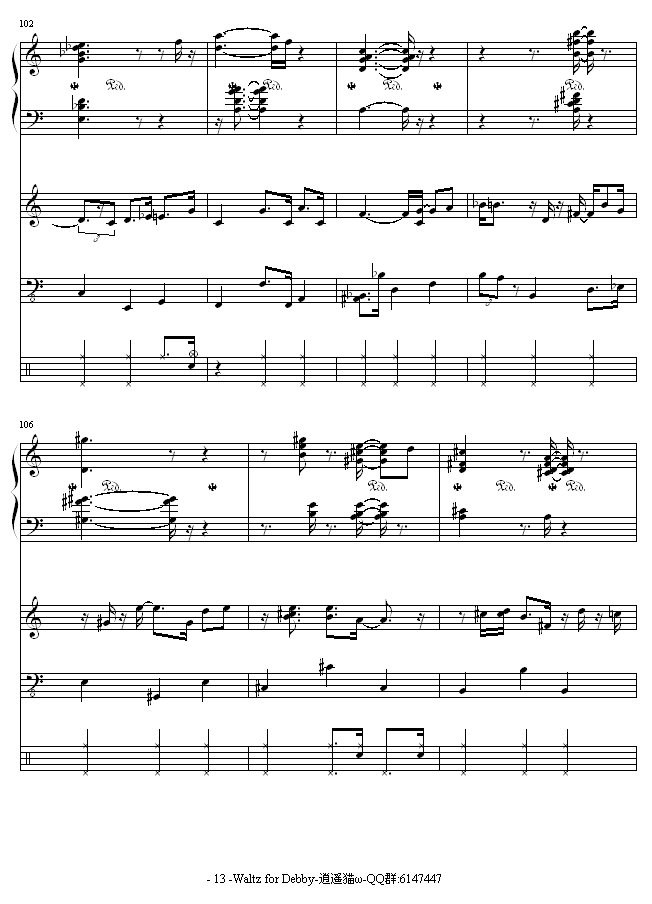 102
3
3
106
- 13 -Waltz for Debby-逍遥猫ω-QQ群:6147447